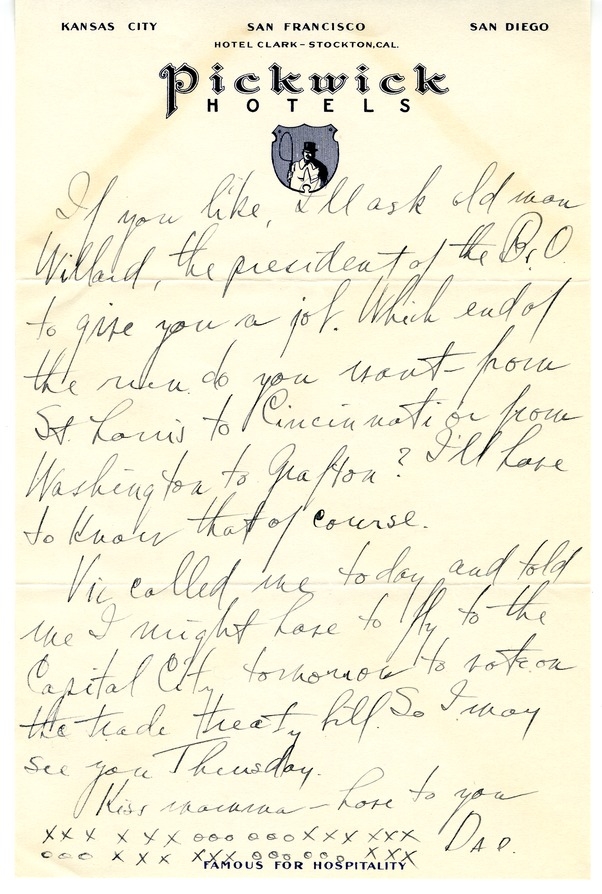 KANSAS CITY SAN FRANCISCO SAN DIEGO
HOTEL CLARK – STOCKTON, CAL.
Pickwick
HOTELS
If you like, I'll ask old man
Willard, the president of the B&O.
to give you a job. Which end of
the run do you want – from
St. Louis to Cincinnati or from
Washington to Grafton? I'll have
to know that of course.
Vic called me today and told
me I might have to fly to the
Capital City tomorrow to vote on
the trade treaty bill. So I may
see you Thursday.
Kiss mamma – love to you
xxx xxx ooo ooo xxx xxx Dad.
ooo xxx xxx ooo ooo xxx
FAMOUS FOR HOSPITALITY